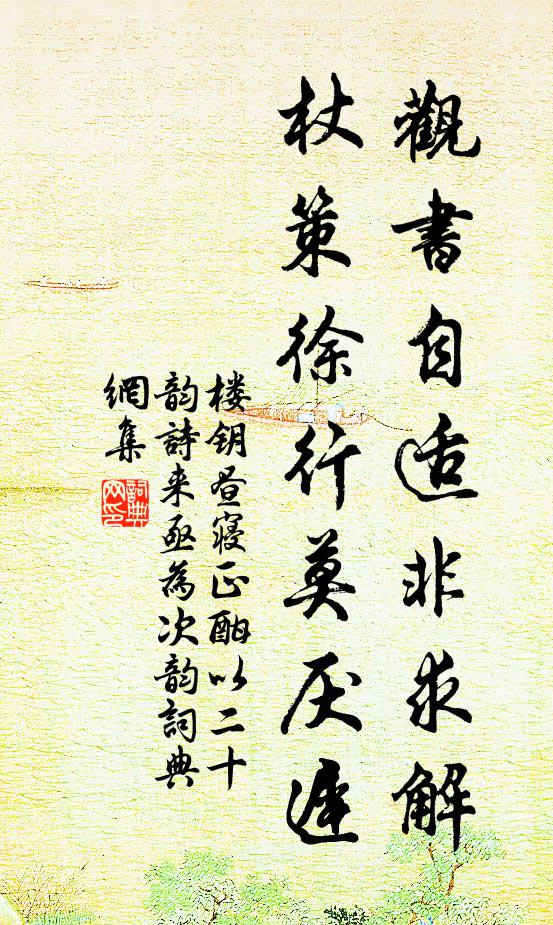 觀書自适非求解
杖策徐行莫厌遲
楼钥昼寢正酣以二十
韵詩来亟為次韵詞典
網集
詞典网印